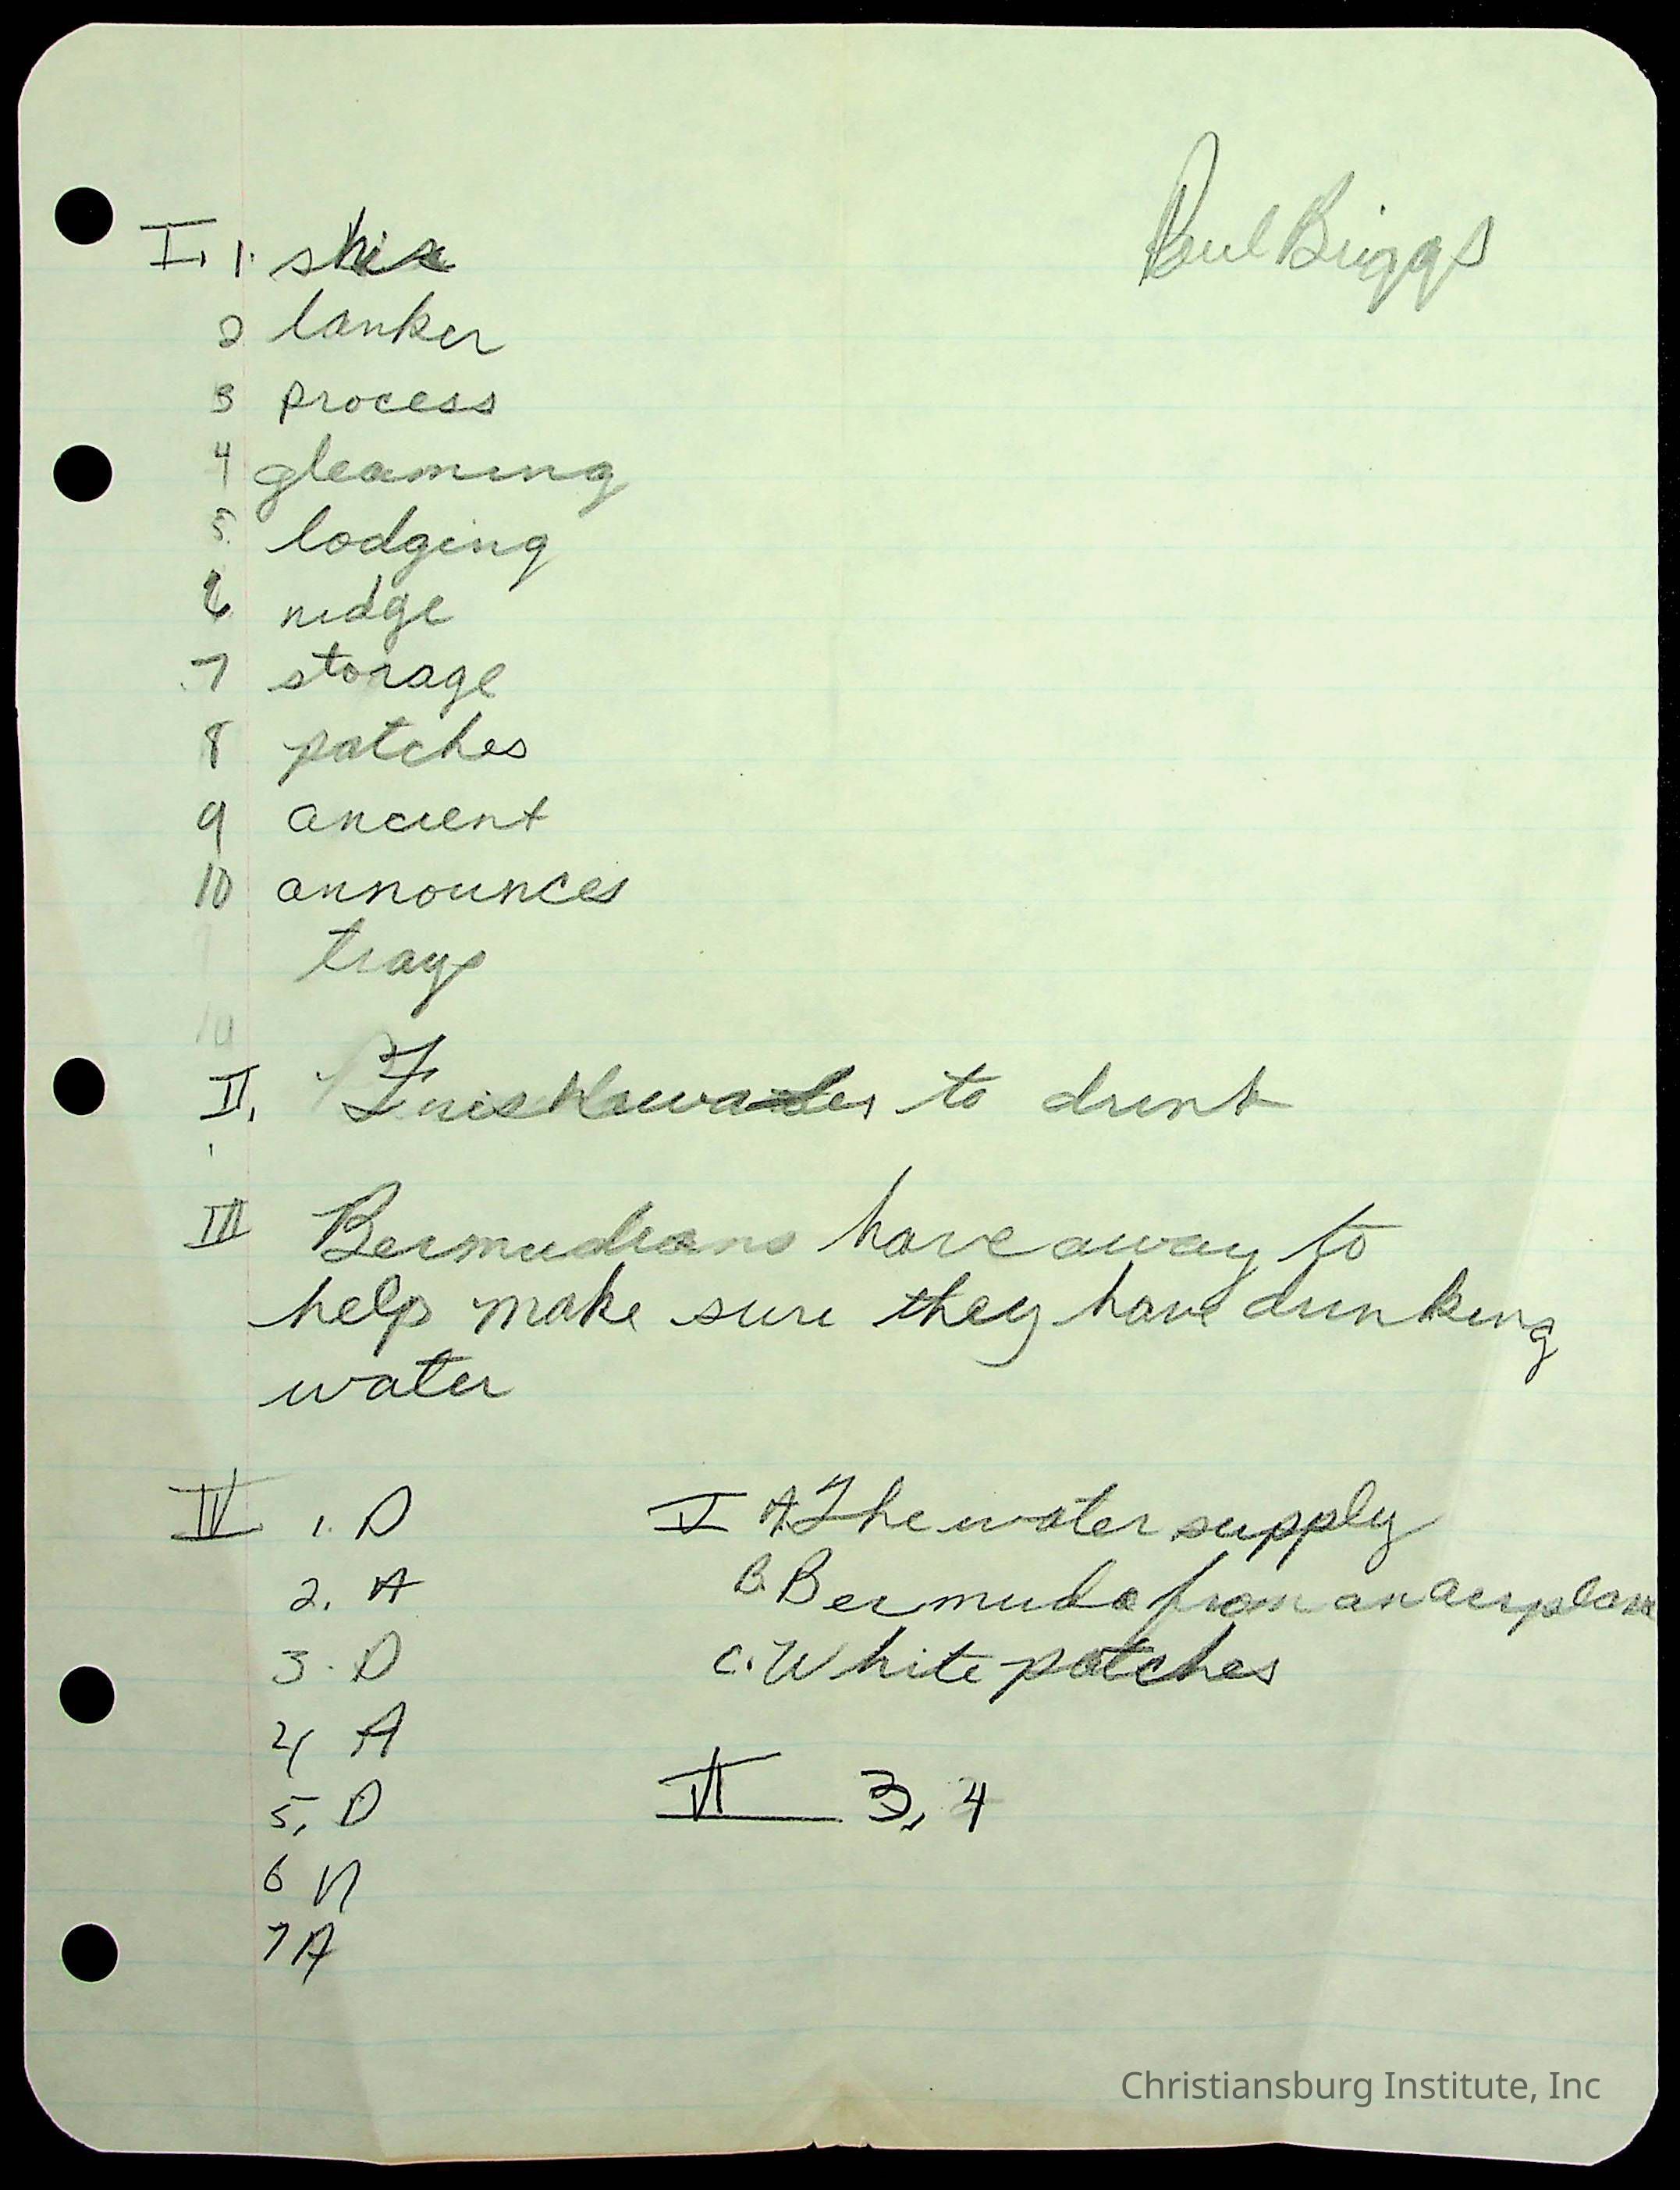 Paul Briggs
I. 1.
2 lanker
3 process
4 gleaming
5. lodging
6. ridge
7 storage
8 patches
9 ancient
10 announces
trays
10
II. to drink
III Bermudians have away to
help make sure they have drinking
water
IV 1. D
2. A
3. D
4 A
5, D
6 N
7 A
V A. The water supply
B. Bermuda from an airplane
C. White patches
VI 3, 4
Christiansburg Institute, Inc